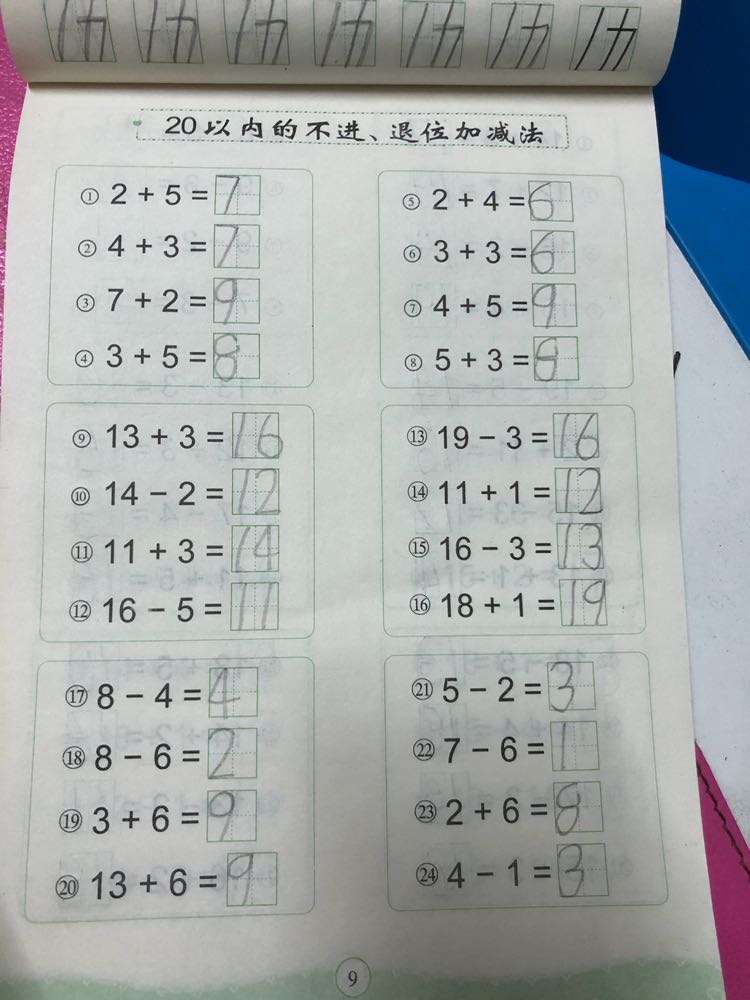 4 4 4 4 4 4 4
20以内的不进、退位加减法
① 2 + 5 = 7
② 4 + 3 = 7
③ 7 + 2 = 9
④ 3 + 5 = 8
⑤ 2 + 4 = 6
⑥ 3 + 3 = 6
⑦ 4 + 5 = 9
⑧ 5 + 3 = 8
⑨ 13 + 3 = 16
⑩ 14 − 2 = 12
⑪ 11 + 3 = 14
⑫ 16 − 5 = 11
⑬ 19 − 3 = 16
⑭ 11 + 1 = 12
⑮ 16 − 3 = 13
⑯ 18 + 1 = 19
⑰ 8 − 4 = 4
⑱ 8 − 6 = 2
⑲ 3 + 6 = 9
⑳ 13 + 6 = 9
㉑ 5 − 2 = 3
㉒ 7 − 6 = 1
㉓ 2 + 6 = 8
㉔ 4 − 1 = 3
9